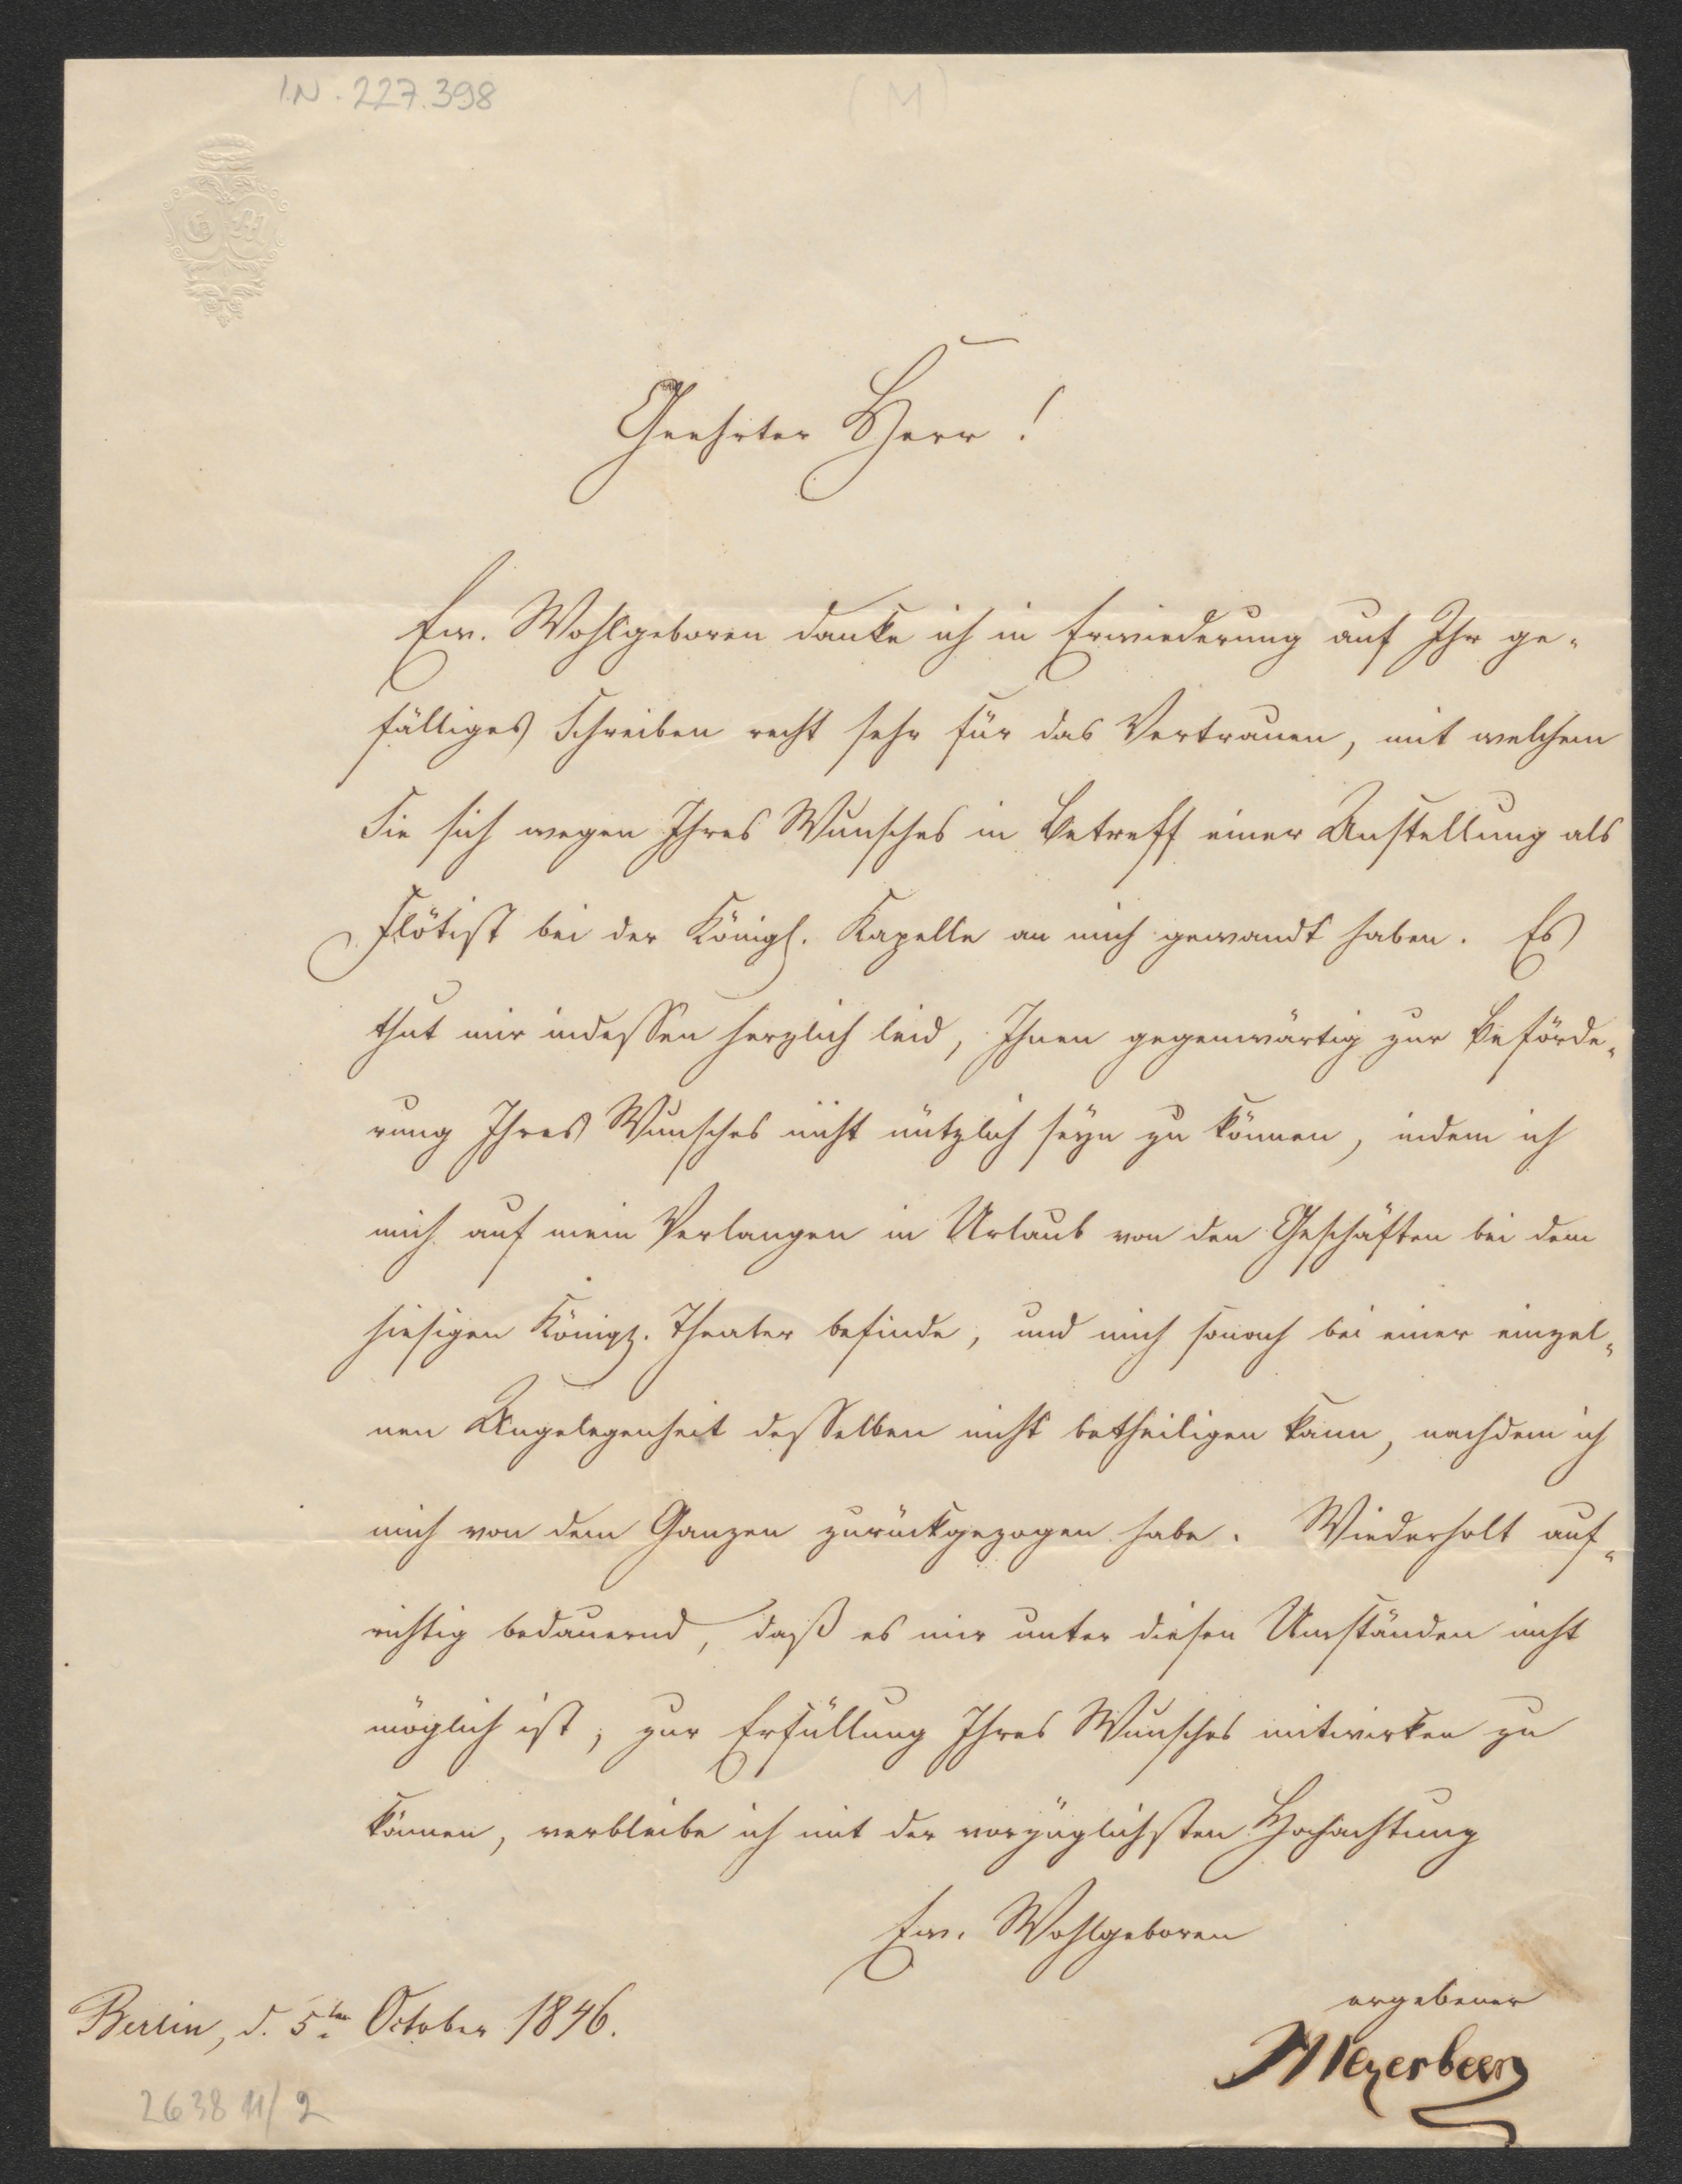 I.N. 227.398
(M)
G M
Geehrter Herr!
Ew. Wohlgeboren danke ich in Erwiederung auf Ihr ge-
fälliges Schreiben recht sehr für das Vertrauen, mit welchem
Sie sich wegen Ihres Wunsches in Betreff einer Anstellung als
Flötist bei der Königl. Kapelle an mich gewandt haben. Es
thut mir indessen herzlich leid, Ihnen gegenwärtig zur Beförde-
rung Ihres Wunsches nicht nützlich seyn zu können, indem ich
mich auf mein Verlangen in Urlaub von den Geschäften bei dem
hiesigen Königl. Theater befinde, und mich sonach bei einer einzel-
nen Angelegenheit desselben nicht betheiligen kann, nachdem ich
mich von dem Ganzen zurückgezogen habe. Wiederholt auf-
richtig bedauernd, daß es mir unter diesen Umständen nicht
möglich ist, zur Erfüllung Ihres Wunsches mitwirken zu
können, verbleibe ich mit der vorzüglichsten Hochachtung
Ew. Wohlgeboren
ergebener
Meyerbeer
Berlin, d. 5ten October 1846.
2638 11/2